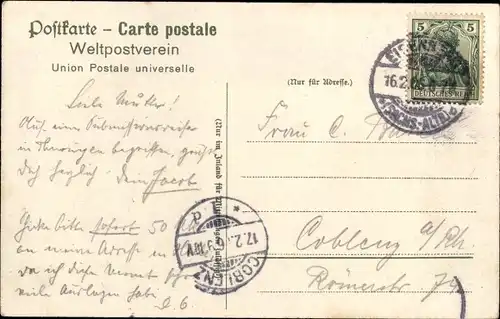 Postkarte – Carte postale
Weltpostverein
Union Postale universelle
(Nur für Adresse.)
5 5
DEUTSCHES REICH
EISENB
16.2.
(SACHS.-ALTB.)
Liebe Mutter!
Auf einer Submissionsreise
in Thüringen begriffen, grüßt
Dich herzlich Dein Jacob
bitte sofort 50
an meine Adresse
da ich diesen Monat sehr
viele Auslagen habe D.O.
(Nur im Inland für
COBLENZ
17.2.
Frau C.
Coblenz a/Rh.
Römerstr. 74